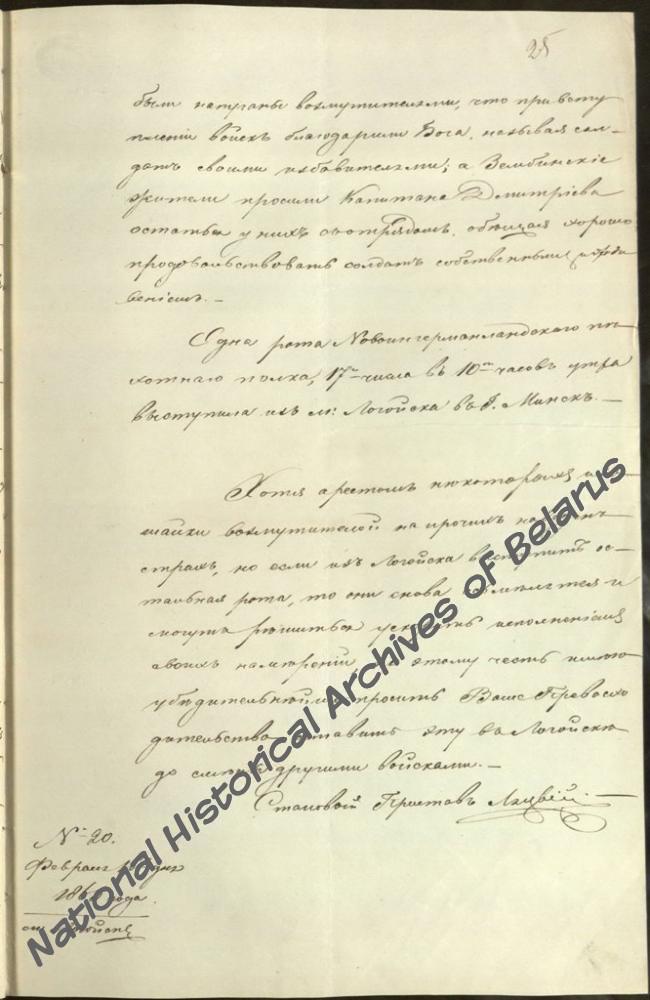 25
были напуганы возмутителями, что при всту
пленіи войскъ благодарили Бога, называя сол-
датъ своими избавителями; а Зембинскіе
жители просили Капитана Дмитріева
остаться у нихъ съ отрядомъ, обѣщая хорошо
продовольствовать солдатъ собственнымъ
веніемъ. —
Одна рота Новоингерманландскаго пѣ
хотнаго полка, 17го числа въ 10ть часовъ утра
выступила изъ м: Логойска въ г. Минскъ. —
Хотя арестомъ нѣкоторыхъ изъ
шайки возмутителей на прочихъ
страхъ, но если изъ Логойска выступитъ ос-
тальная рота, то они снова и
могутъ рѣшиться исполненіемъ
своихъ намѣреній, а этому честь имѣю
убѣдительнѣйше просить Ваше Превосхо
дительство оставить эту въ Логойскѣ
до другими войсками. —
Становой Приставъ
№ 20.
Февраля дня
186 года.
National Historical Archives of Belarus